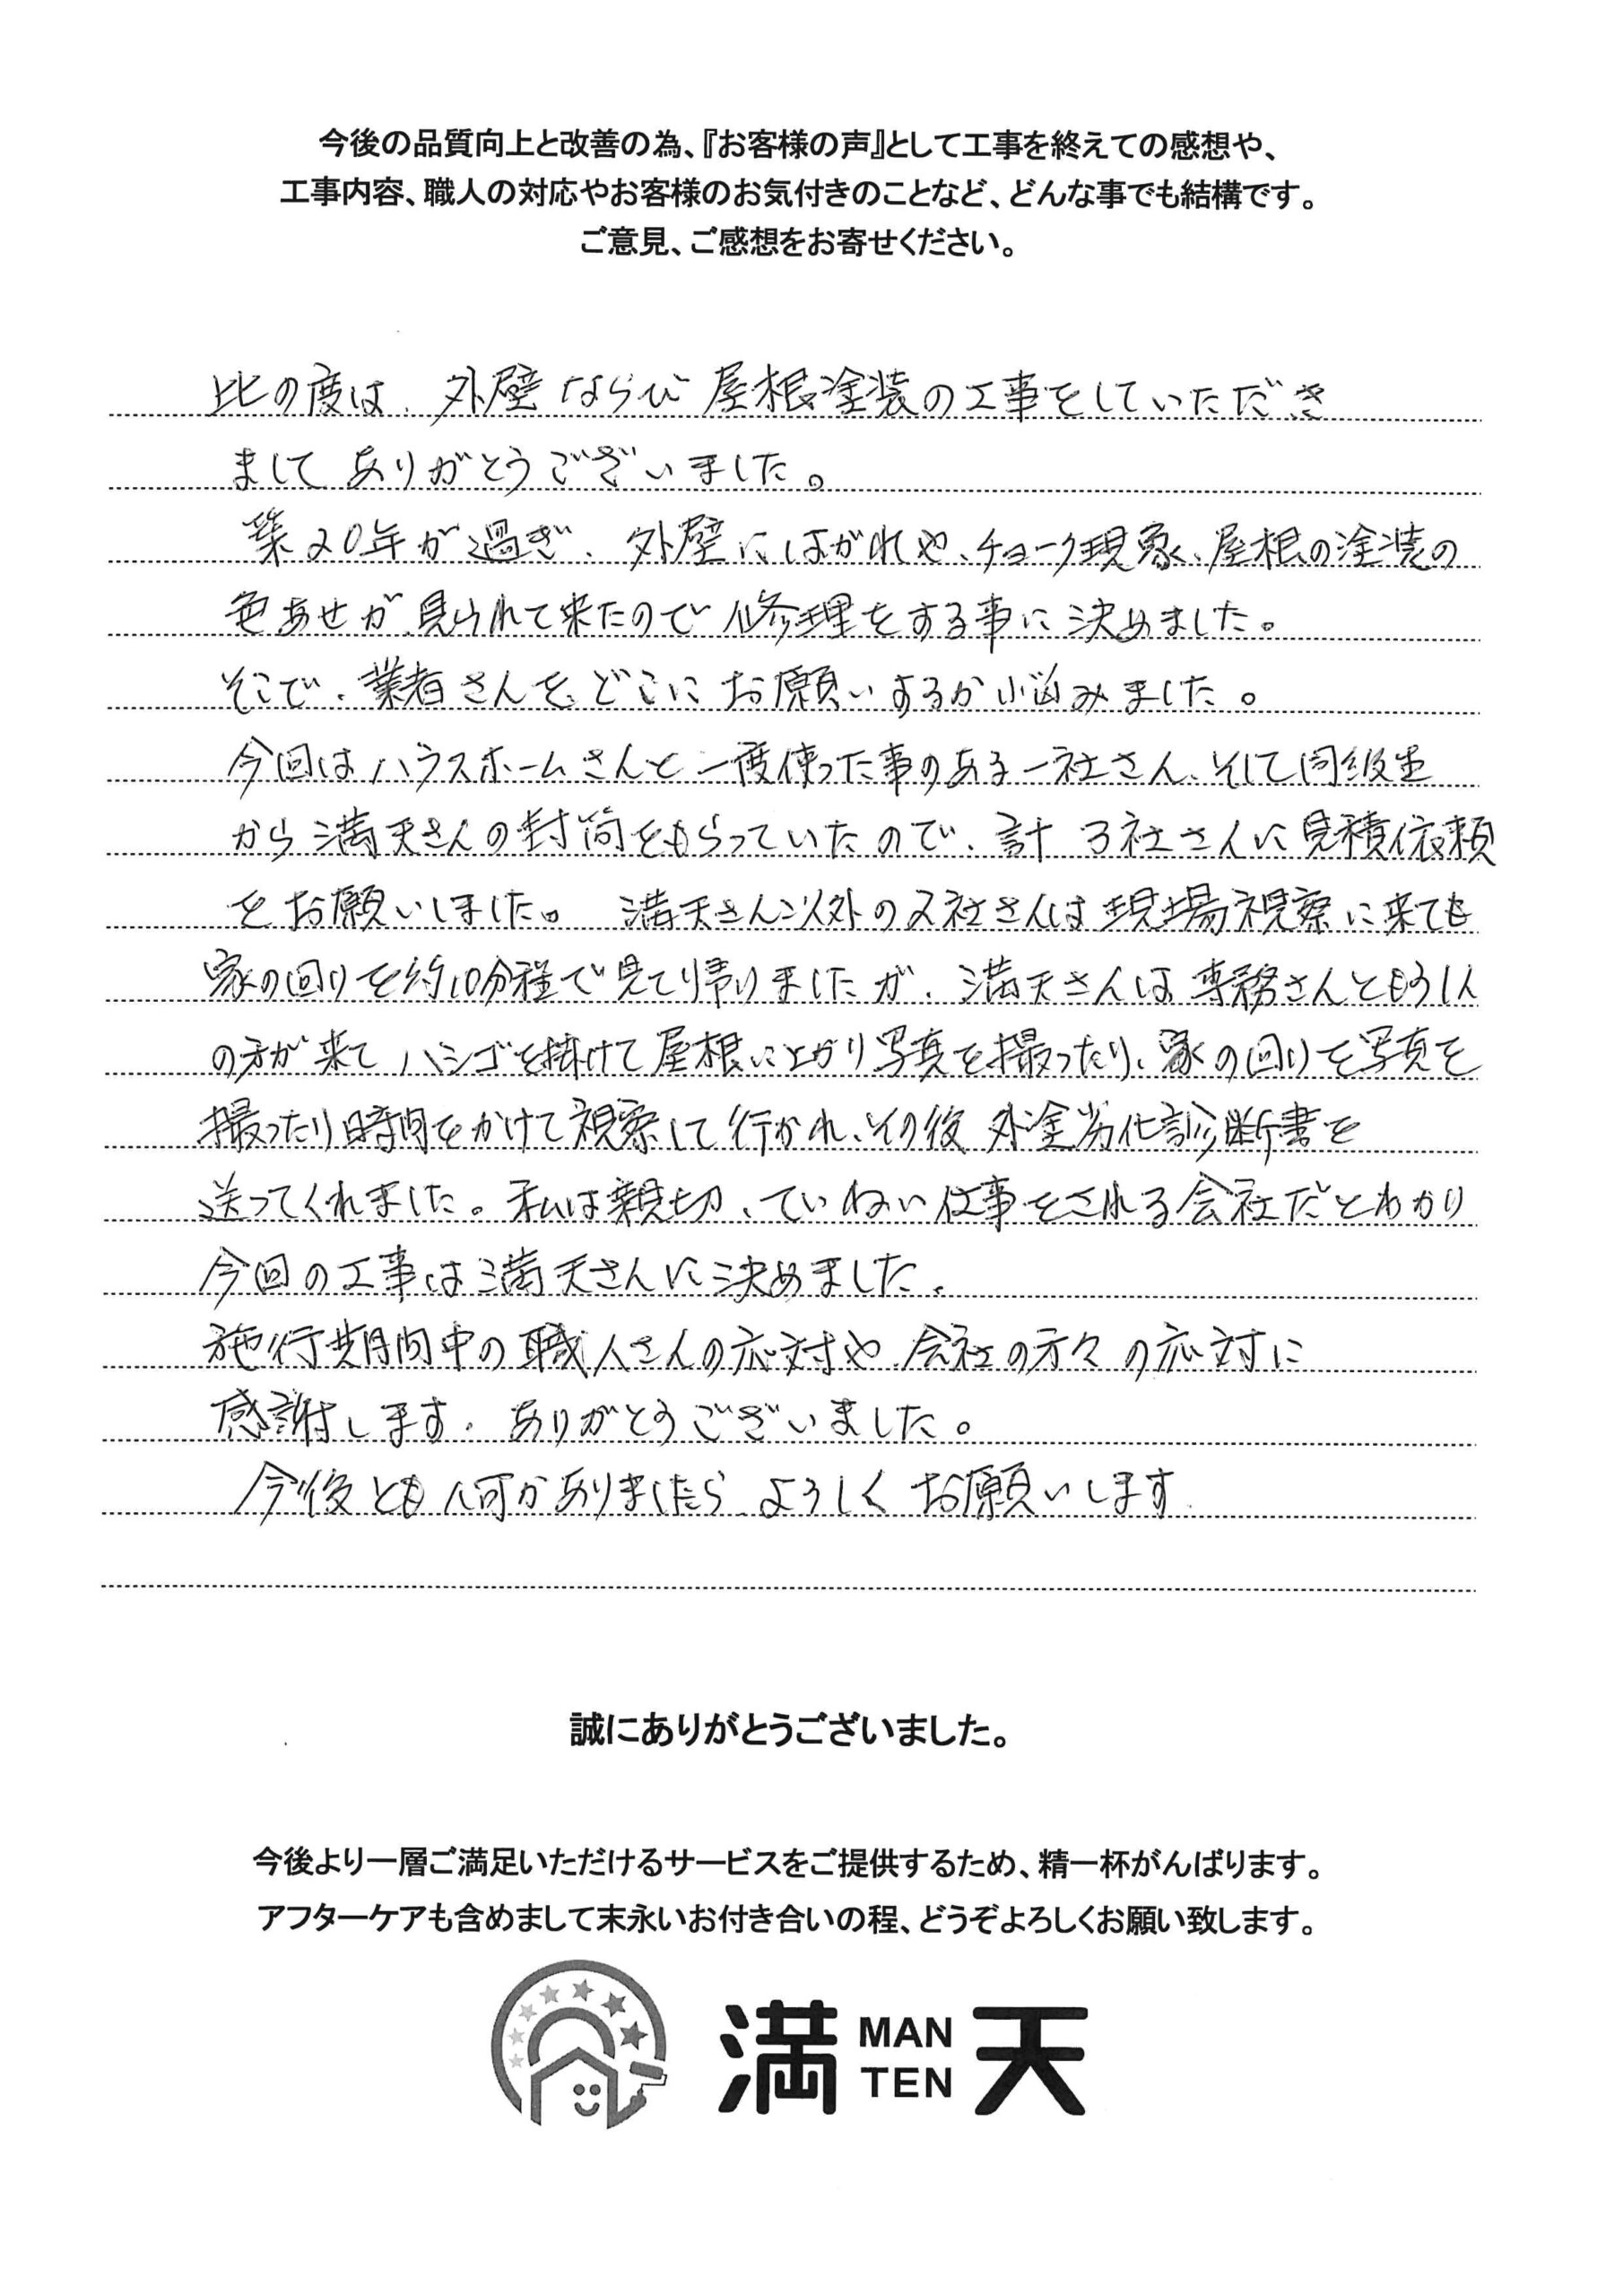 今後の品質向上と改善の為、『お客様の声』として工事を終えての感想や、
工事内容、職人の対応やお客様のお気付きのことなど、どんな事でも結構です。
ご意見、ご感想をお寄せください。
比の度は、外壁ならび屋根塗装の工事をしていただき
ましてありがとうございました。
築20年が過ぎ、外壁にはがれや、チョーク現象、屋根の塗装の
色あせが見られて来たので修理をする事に決めました。
そこで、業者さんをどこにお願いするか悩みました。
今回はハウスホームさんと一度使った事のある一社さん、そして同級生
から満天さんの封筒をもらっていたので、計3社さんに見積依頼
をお願いしました。満天さん以外の2社さんは現場視察に来ても
家の回りを約10分程で見て帰りましたが、満天さんは専務さんともう1人
の方が来てハシゴを掛けて屋根に上がり写真を撮ったり、家の回りを写真を
撮ったり時間をかけて視察して行かれ、その後外塗劣化診断書を
送ってくれました。私は親切、ていねい仕事をされる会社だとわかり
今回の工事は満天さんに決めました。
施行期間中の職人さんの応対や、会社の方々の応対に
感謝します。ありがとうございました。
今後とも何かありましたら、よろしくお願いします。
誠にありがとうございました。
今後より一層ご満足いただけるサービスをご提供するため、精一杯がんばります。
アフターケアも含めまして末永いお付き合いの程、どうぞよろしくお願い致します。
満天 MAN TEN